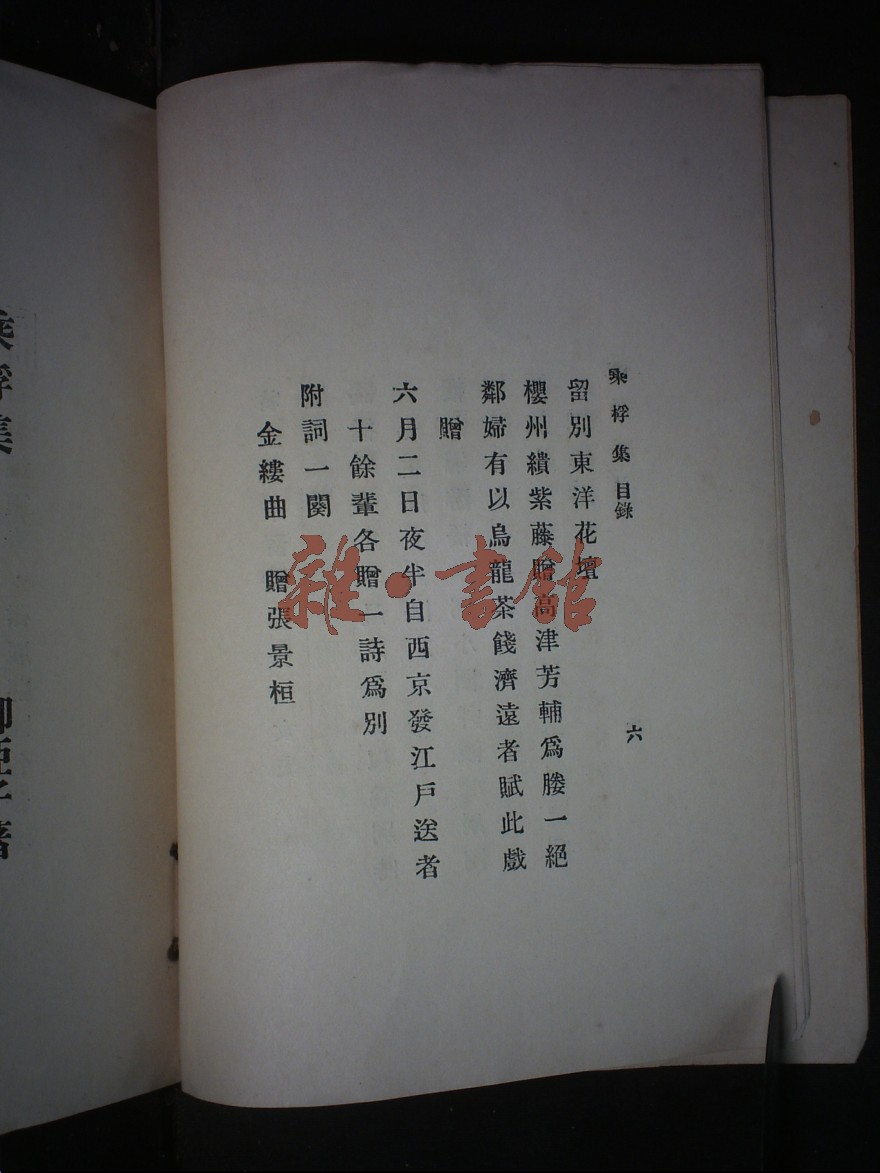 乘桴集目錄 六
留別東洋花壇
櫻州繢紫藤贈高津芳輔爲賸一絕
鄰婦有以烏龍茶餞濟遠者賦此戲
贈
六月二日夜半自西京發江戶送者
十餘輩各贈一詩爲別
附詞一闋
金縷曲 贈張景桓
乘桴集 柳亞子著
雜·書館